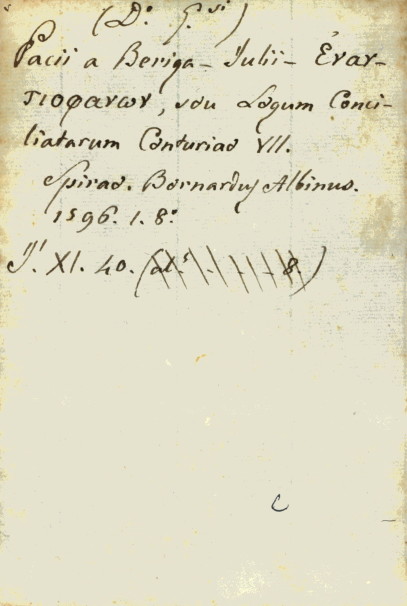 (D. G.si)
Pacii a Beriga - Julii - Ἐναν-
τιοφανων, seu Legum Conci-
liatarum Centuriae VII.
Spirae. Bernardus Albinus.
1596. 1. 8.º
J.' XI. 40. (al.s 8.)
c